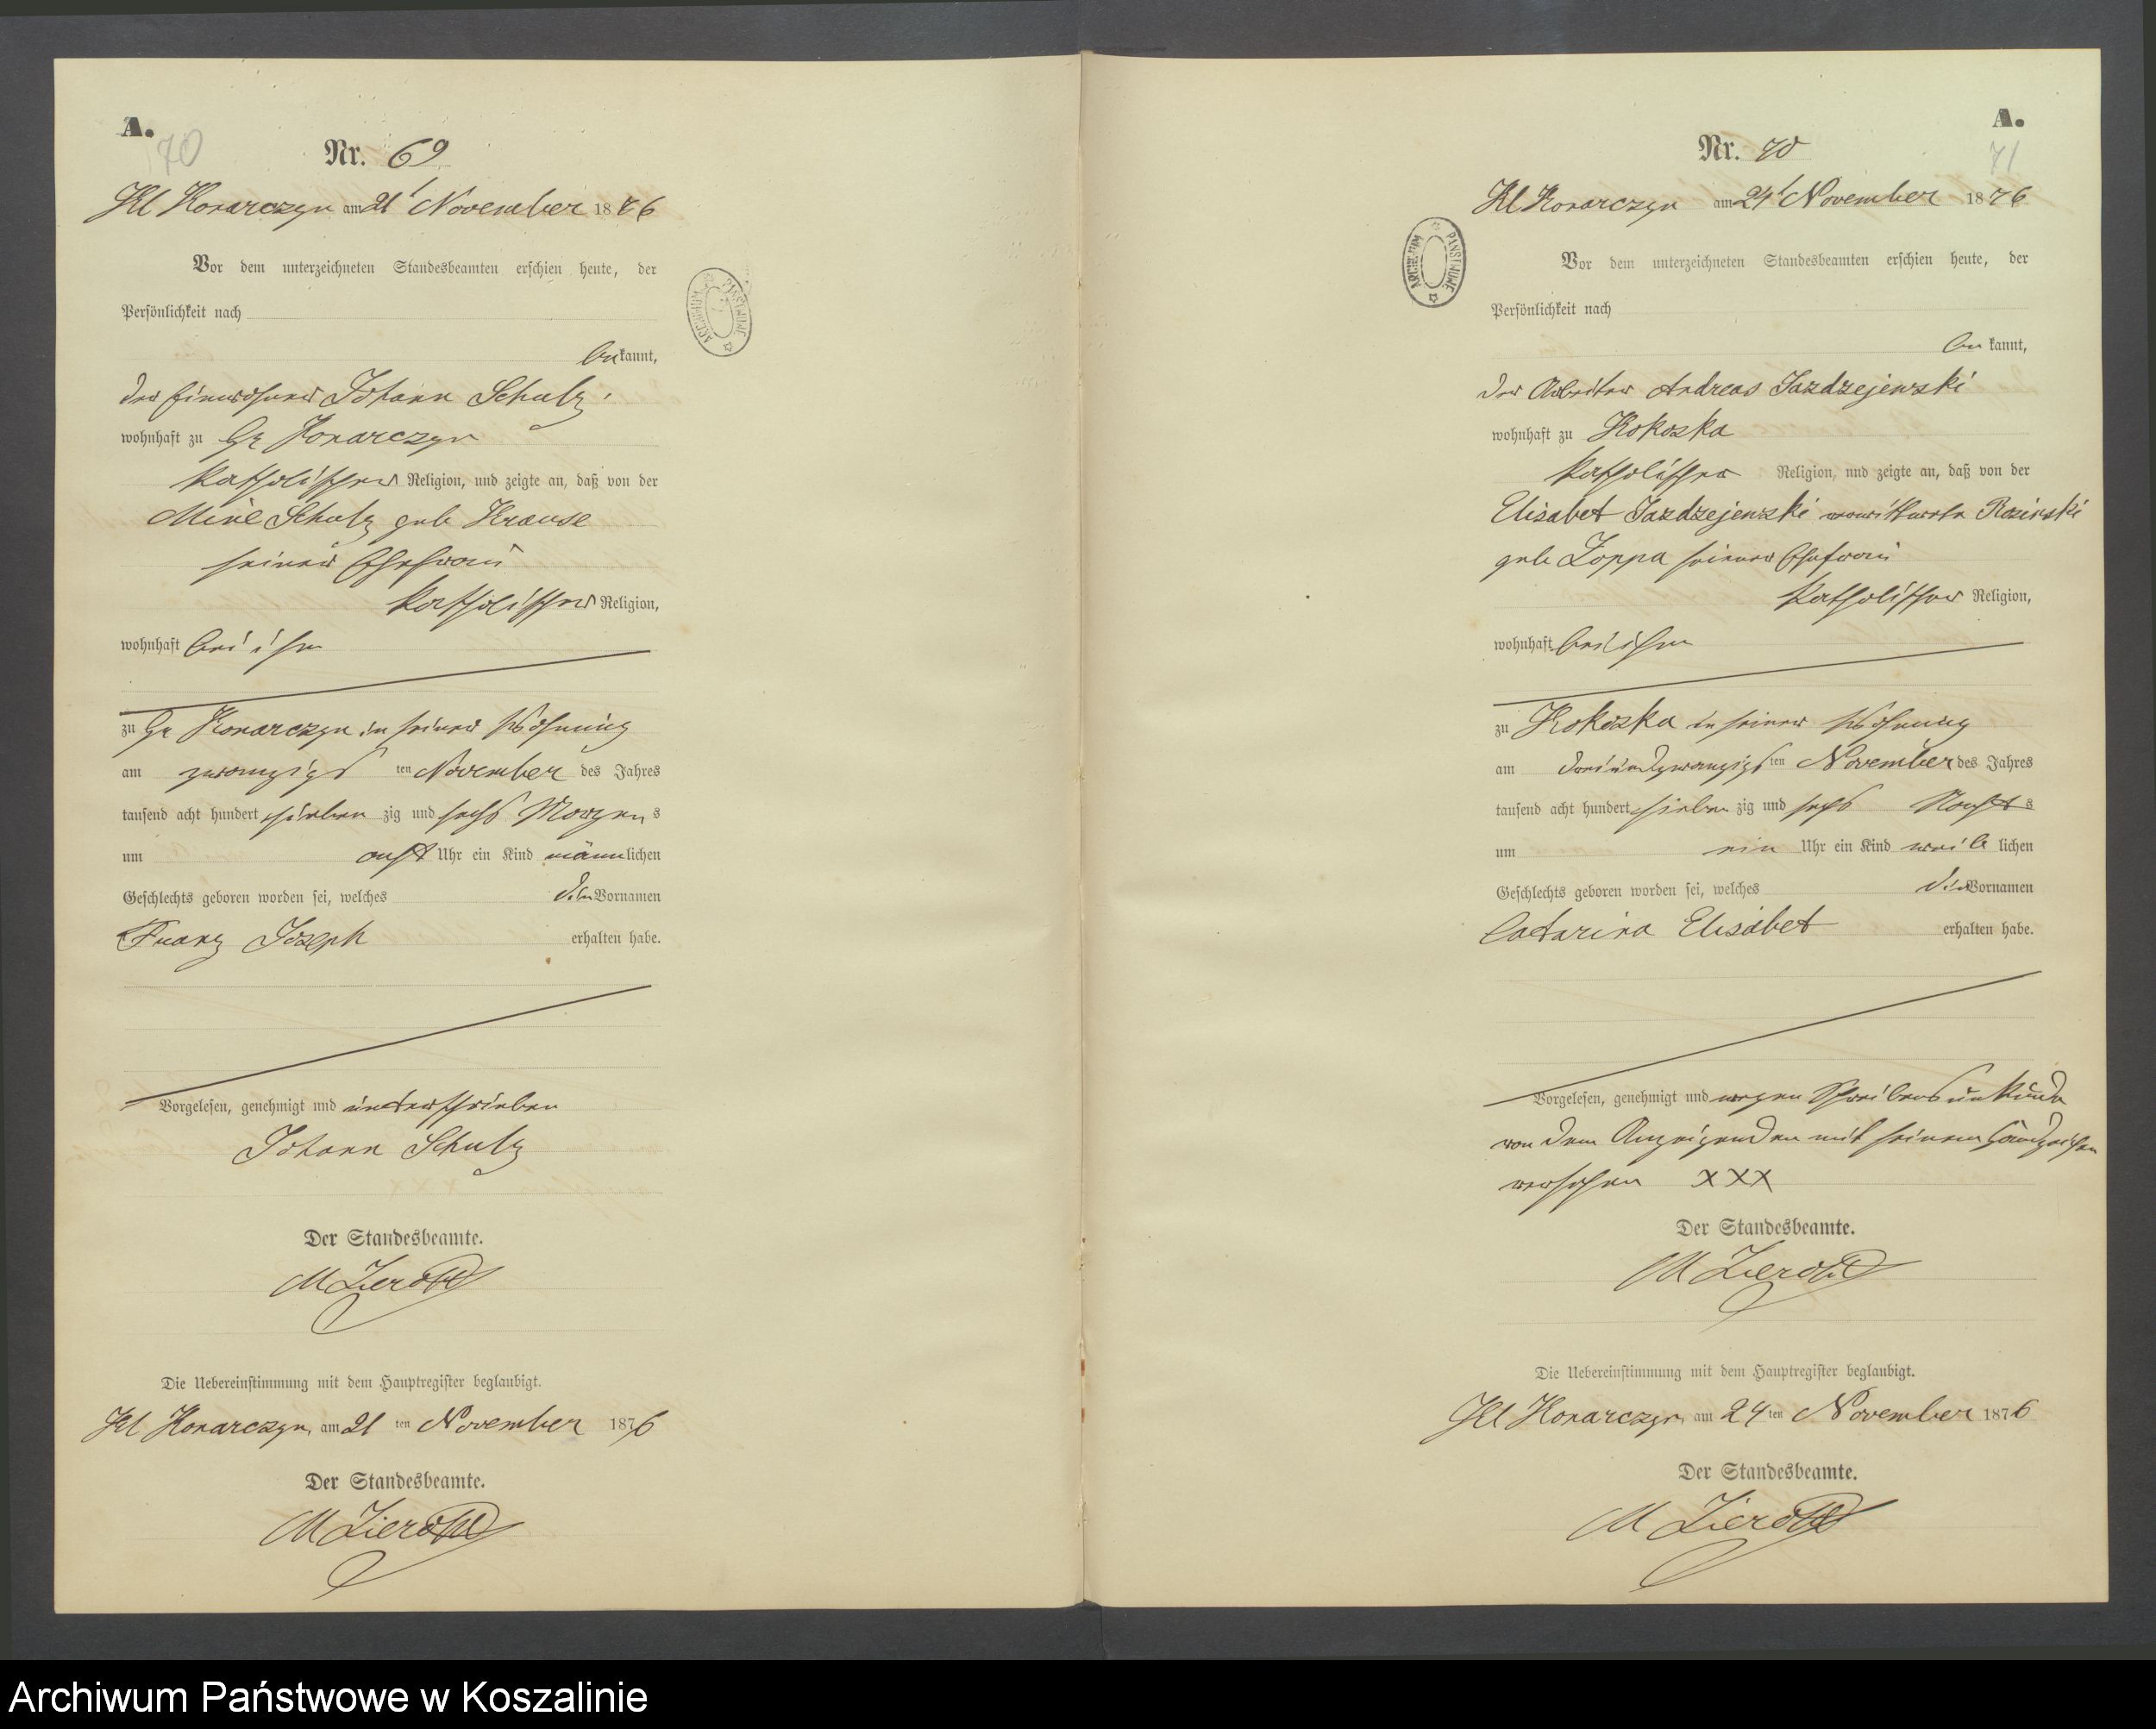 A.
70
Nr. 69
Kl Konarczyn am 21t November 1876
Vor dem unterzeichneten Standesbeamten erschien heute, der
Persönlichkeit nach
bekannt,
der Einwohner Johann Schulz,
wohnhaft zu Gr Konarczyn
katholischer Religion, und zeigte an, daß von der
Schulz geb Krause
seiner Ehefrau
katholischer Religion,
wohnhaft bei ihm
zu Gr Konarczyn in seiner Wohnung
am zwanzigs ten November des Jahres
tausend acht hundert sieben zig und sechs Morgens
um acht Uhr ein Kind männlichen
Geschlechts geboren worden sei, welches die Vornamen
Franz Joseph erhalten habe.
Vorgelesen, genehmigt und unterschrieben
Johann Schulz
Der Standesbeamte.
M
Die Uebereinstimmung mit dem Hauptregister beglaubigt.
Kl Konarczyn, am 21 ten November 1876
Der Standesbeamte.
M
ARCHIWUM PAŃSTWOWE
A.
71
Nr. 70
Kl Konarczyn am 24t November 1876
Vor dem unterzeichneten Standesbeamten erschien heute, der
Persönlichkeit nach
bekannt,
der Arbeiter Andreas Jazdzejewski
wohnhaft zu Kokoska
katholischer Religion, und zeigte an, daß von der
Elisabet Jazdzejewski verwittwete Rosinski
geb Zoppa seiner Ehefrau
katholischer Religion,
wohnhaft bei ihm
zu Kokoska in seiner Wohnung
am dreiundzwanzigs ten November des Jahres
tausend acht hundert sieben zig und sechs Nachts
um ein Uhr ein Kind weib lichen
Geschlechts geboren worden sei, welches die Vornamen
Catarina Elisabet erhalten habe.
Vorgelesen, genehmigt und wegen Schreibensunkunde
von dem Anzeigenden mit seinem Handzeichen
versehen XXX
Der Standesbeamte.
M
Die Uebereinstimmung mit dem Hauptregister beglaubigt.
Kl Konarczyn, am 24 ten November 1876
Der Standesbeamte.
M
ARCHIWUM PAŃSTWOWE
Archiwum Państwowe w Koszalinie